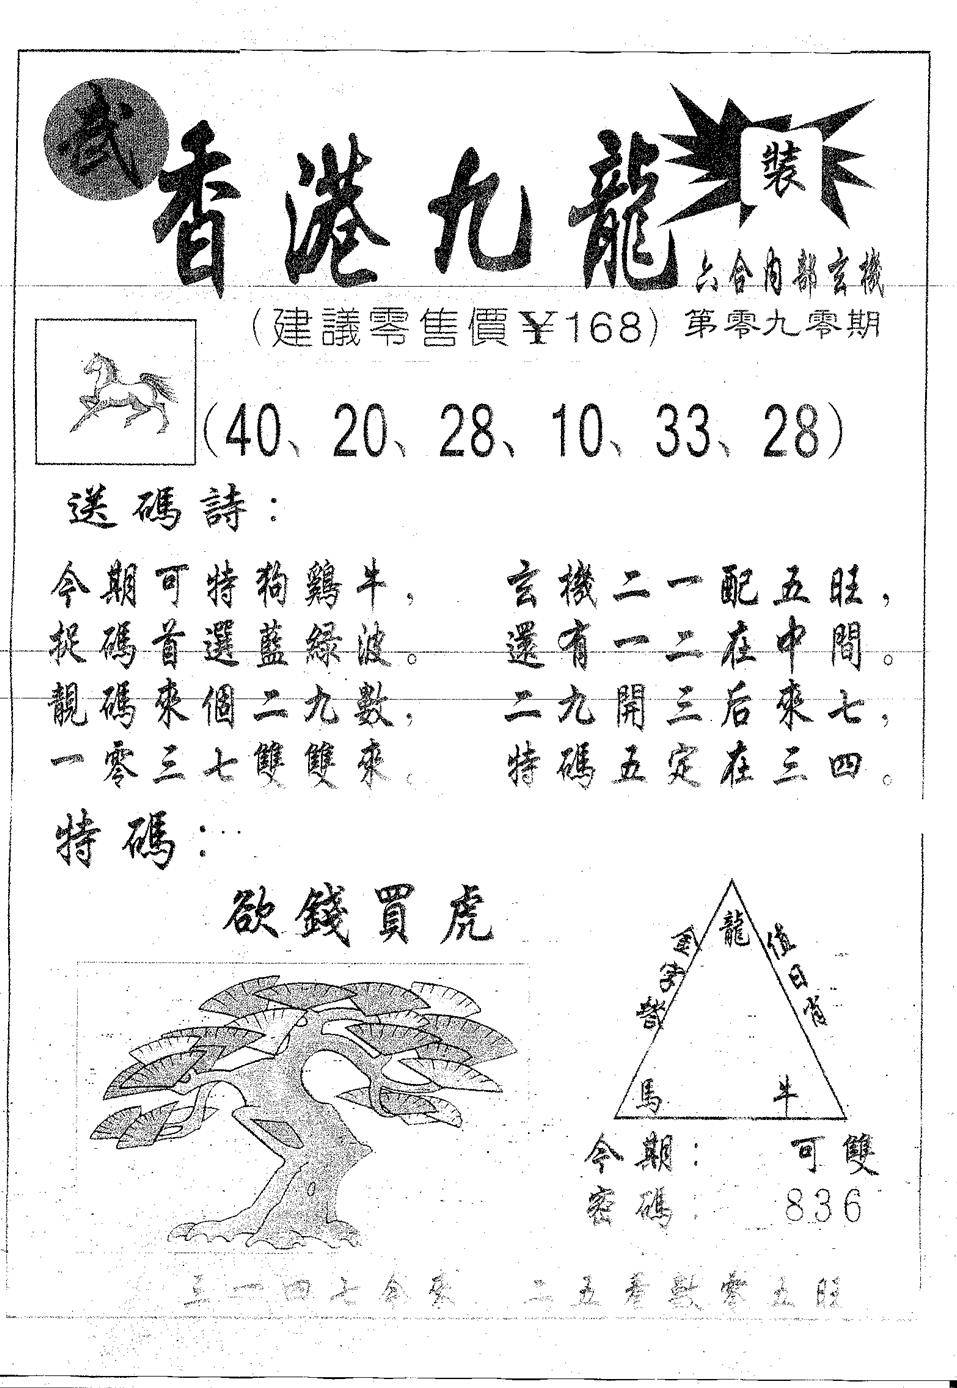 武
香港九龍
裝
六合内部玄機
(建議零售價¥168)
第零九零期
(40、20、28、10、33、28)
送碼詩：
今期可特狗鷄牛，玄機二一配五旺，
捉碼首選藍緑波。還有一二在中間。
靚碼來個二九數，二九開三后來七，
一零三七雙雙來。特碼五定在三四。
特碼：
欲錢買虎
龍
值日肖
馬
牛
今期：可雙
密碼：836
三一四七合來 二五叁數零五旺